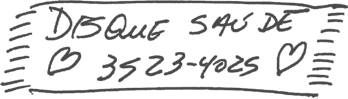 DISQUE SAÚDE
♡ 3523-4025 ♡